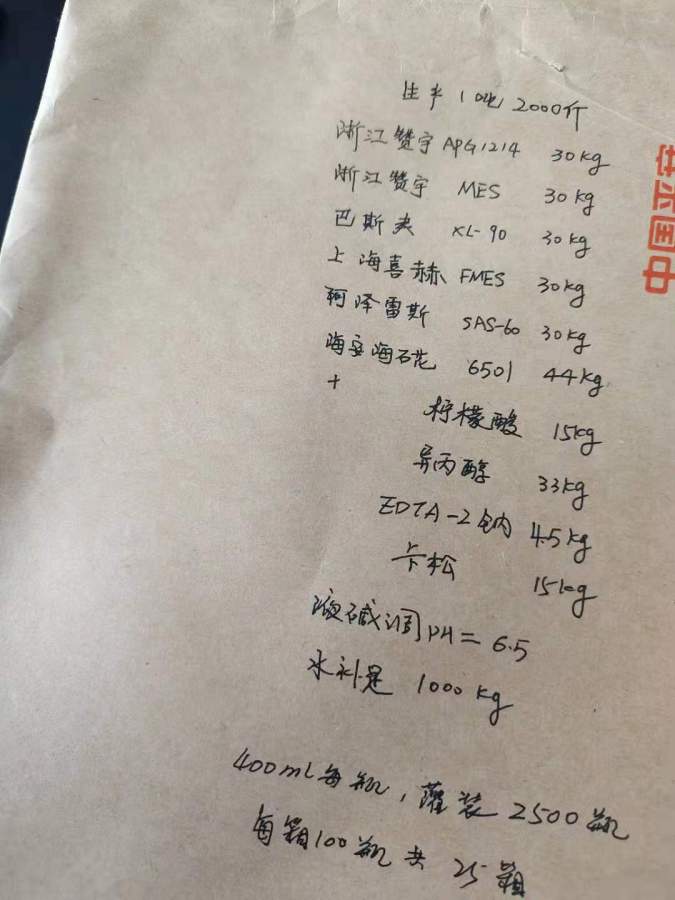 生产 1吨 2000斤
浙江赞宇 APG1214 30kg
浙江赞宇 MES 30kg
巴斯夫 XL-90 30kg
上海喜赫 FMES 30kg
柯泽雷斯 SAS-60 30kg
海安海石花 6501 44kg
+
柠檬酸 15kg
异丙醇 33kg
EDTA-2钠 4.5kg
卡松 15kg
液碱调PH=6.5
水补足 1000kg
400ml每瓶，灌装2500瓶
每箱100瓶共25箱
中国